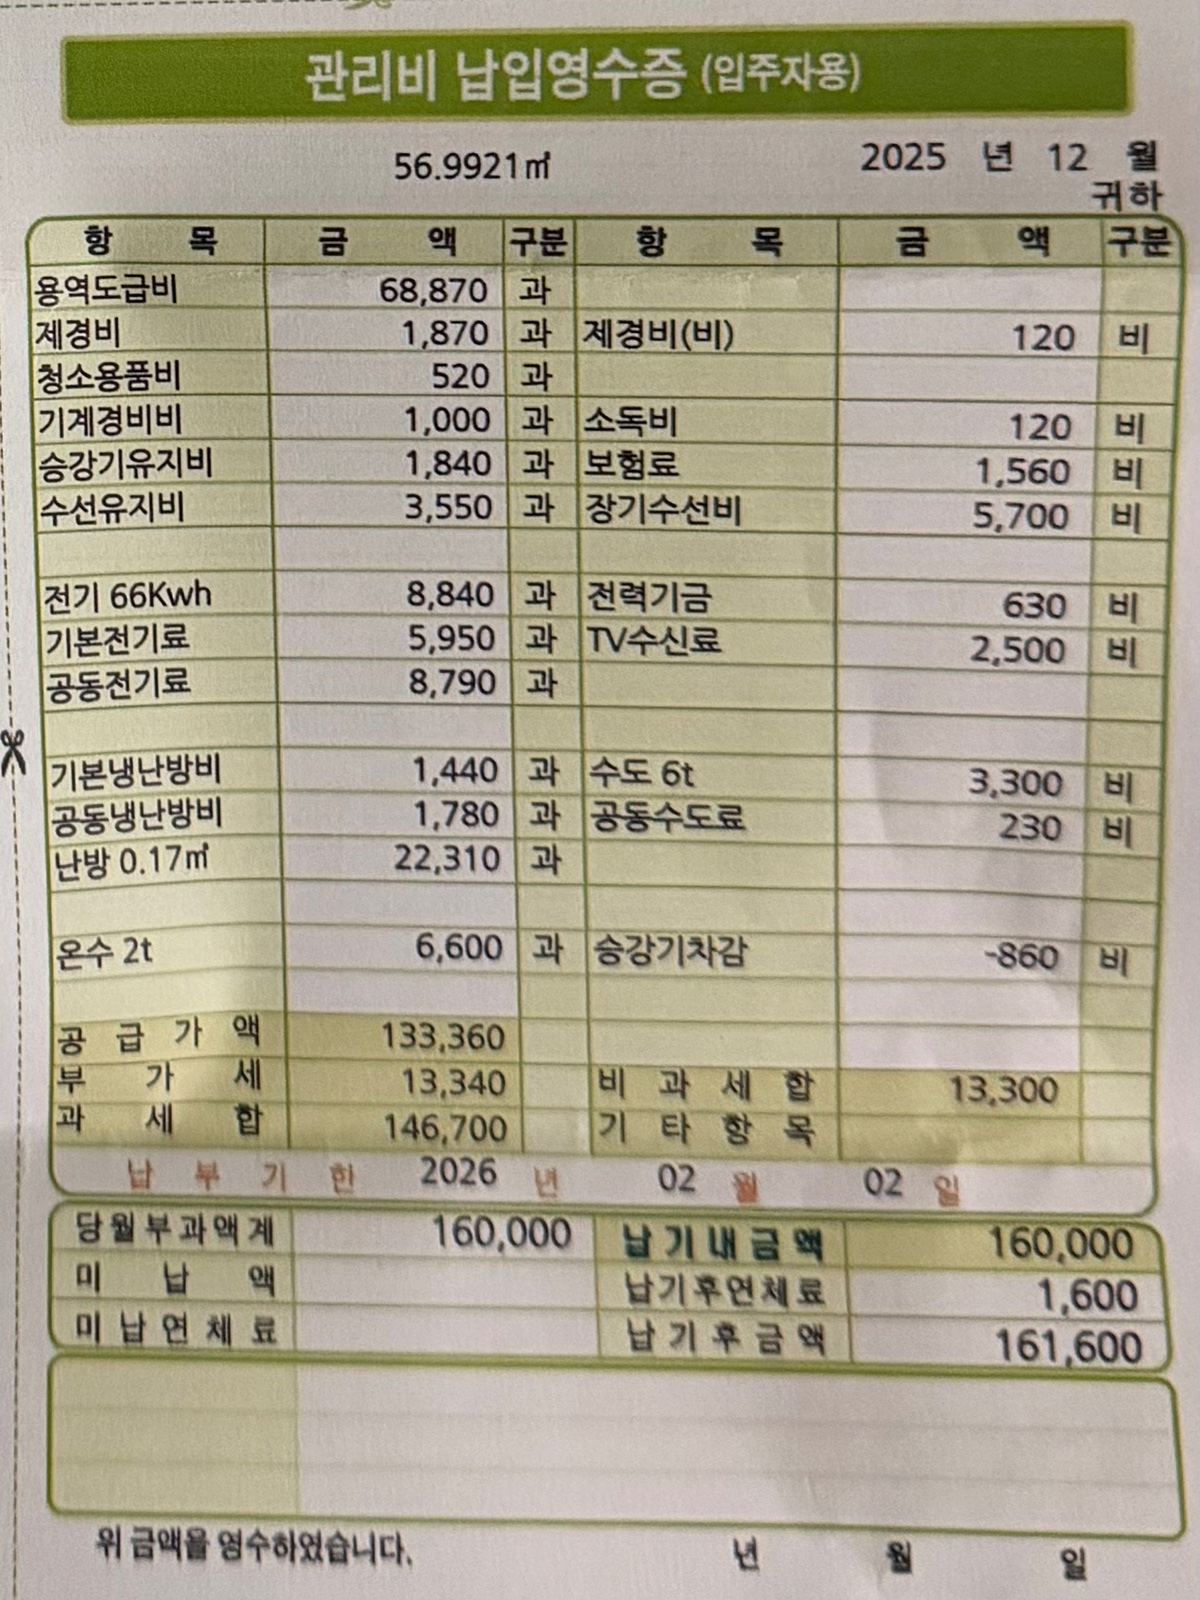 관리비 납입영수증 (입주자용)
56.9921㎡ 2025 년 12 월
귀하
항 목 금 액 구분 항 목 금 액 구분
용역도급비 68,870 과
제경비 1,870 과 제경비(비) 120 비
청소용품비 520 과
기계경비비 1,000 과 소독비 120 비
승강기유지비 1,840 과 보험료 1,560 비
수선유지비 3,550 과 장기수선비 5,700 비
전기 66Kwh 8,840 과 전력기금 630 비
기본전기료 5,950 과 TV수신료 2,500 비
공동전기료 8,790 과
기본냉난방비 1,440 과 수도 6t 3,300 비
공동냉난방비 1,780 과 공동수도료 230 비
난방 0.17㎥ 22,310 과
온수 2t 6,600 과 승강기차감 -860 비
공 급 가 액 133,360
부 가 세 13,340 비 과 세 합 13,300
과 세 합 146,700 기 타 항 목
납 부 기 한 2026 년 02 월 02 일
당월부과액계 160,000 납기내금액 160,000
미 납 액 납기후연체료 1,600
미납연체료 납기후금액 161,600
위 금액을 영수하였습니다. 년 월 일